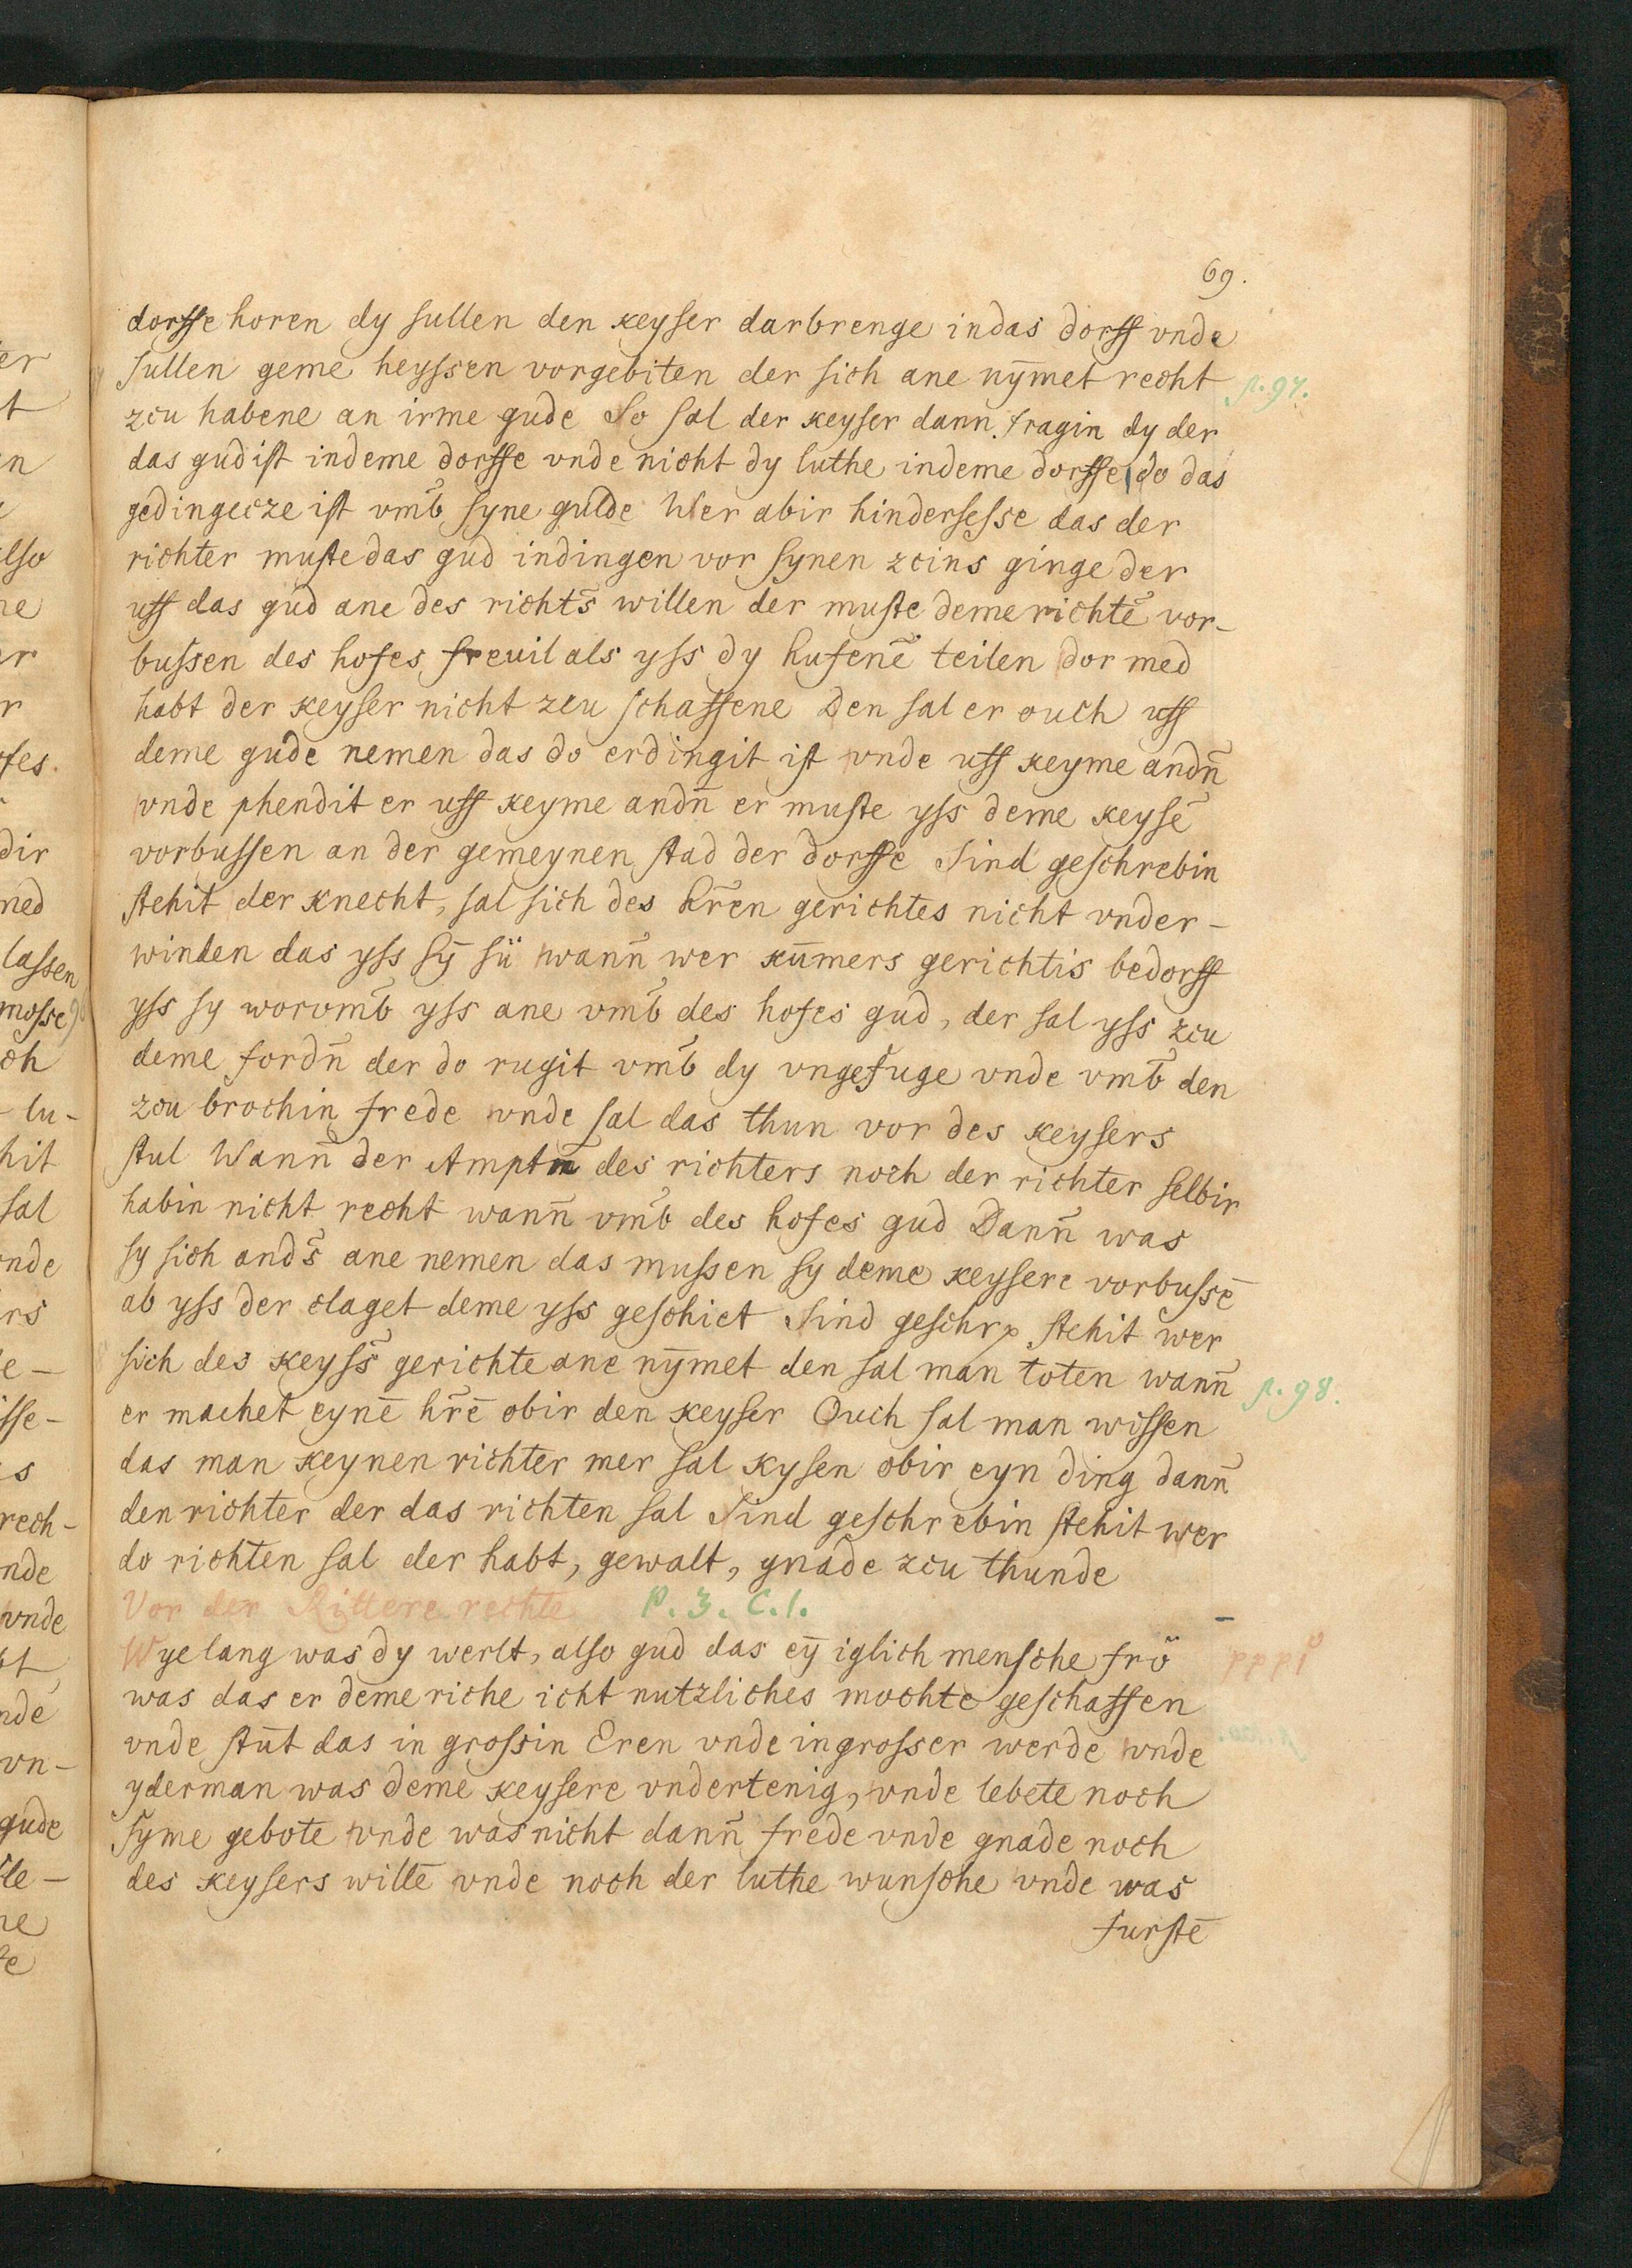 69.
dorffe horen dy sullen den keyser darbrenge indas dorff vnde
sullen geme heyssen vorgebiten der sich ane nȳmet recht p. 97.
zcu habene an irme gude So sal der keyser dann. fragin dy der
das gud ist indeme dorffe vnde nicht dy luthe indeme dorffe do das
gedingecze ist vm̄b syne gulde Wer abir hindersesse das der
richter muste das gud indingen vor synen zcins ginge der
uff das gud ane des richts̄ willen der muste deme richtē vor-
bussen des hofes freuil als yss dy hufenē teilen dor med
habt der keyser nicht zcu schaffene Den sal er ouch uff
deme gude nemen das do erdingit ist vnde uff keyme andn̄
vnde phendit er uff keyme andn̄ er muste yss deme keysē
vorbussen an der gemeynen stad der dorffe Sind geschrebin
stehit der knecht, sal sich des hr̄en gerichtes nicht vnder-
winden das yss sȳ sü wann̄ wer kūmers gerichtis bedorff
yss sy worvm̄b yss ane vm̄b des hofes gud, der sal yss zcu
deme fordn̄ der do rugit vm̄b dy vngefuge vnde vm̄b den
zcu brochin frede vnde sal das thun vor des keysers
stul Wann̄ der Amptm̄ des richters noch der richter selbir
habin nicht recht wann̄ vm̄b des hofes gud Dann̄ was
sy sich ands̄ ane nemen das mussen sy deme keysere vorbussē
ab yss der claget deme yss geschiet Sind geschrp stehit wer
sich des keyss̄ gerichte ane nȳmet den sal man toten wann̄ p. 98.
er machet eynē hr̄ē obir den keyser Ouch sal man wissen
das man keynen richter mer sal kysen obir eyn ding dann̄
den richter der das richten sal Sind geschrebin stehit wer
do richten sal der habt, gewalt, gnade zcu thunde
Von der Rittere rechte P. 3. C. 1.
Wye lang was dy werlt, also gud das eȳ iglich mensche fro
was das er deme riche icht nutzliches mochte geschaffen
vnde stūt das in grossin Eren vnde ingrosser werde vnde
yderman was deme keysere vndertenig, vnde lebete noch
syme gebote vnde was nicht dann̄ frede vnde gnade noch
des keysers willē vnde noch der luthe wunsche vnde was
furstē